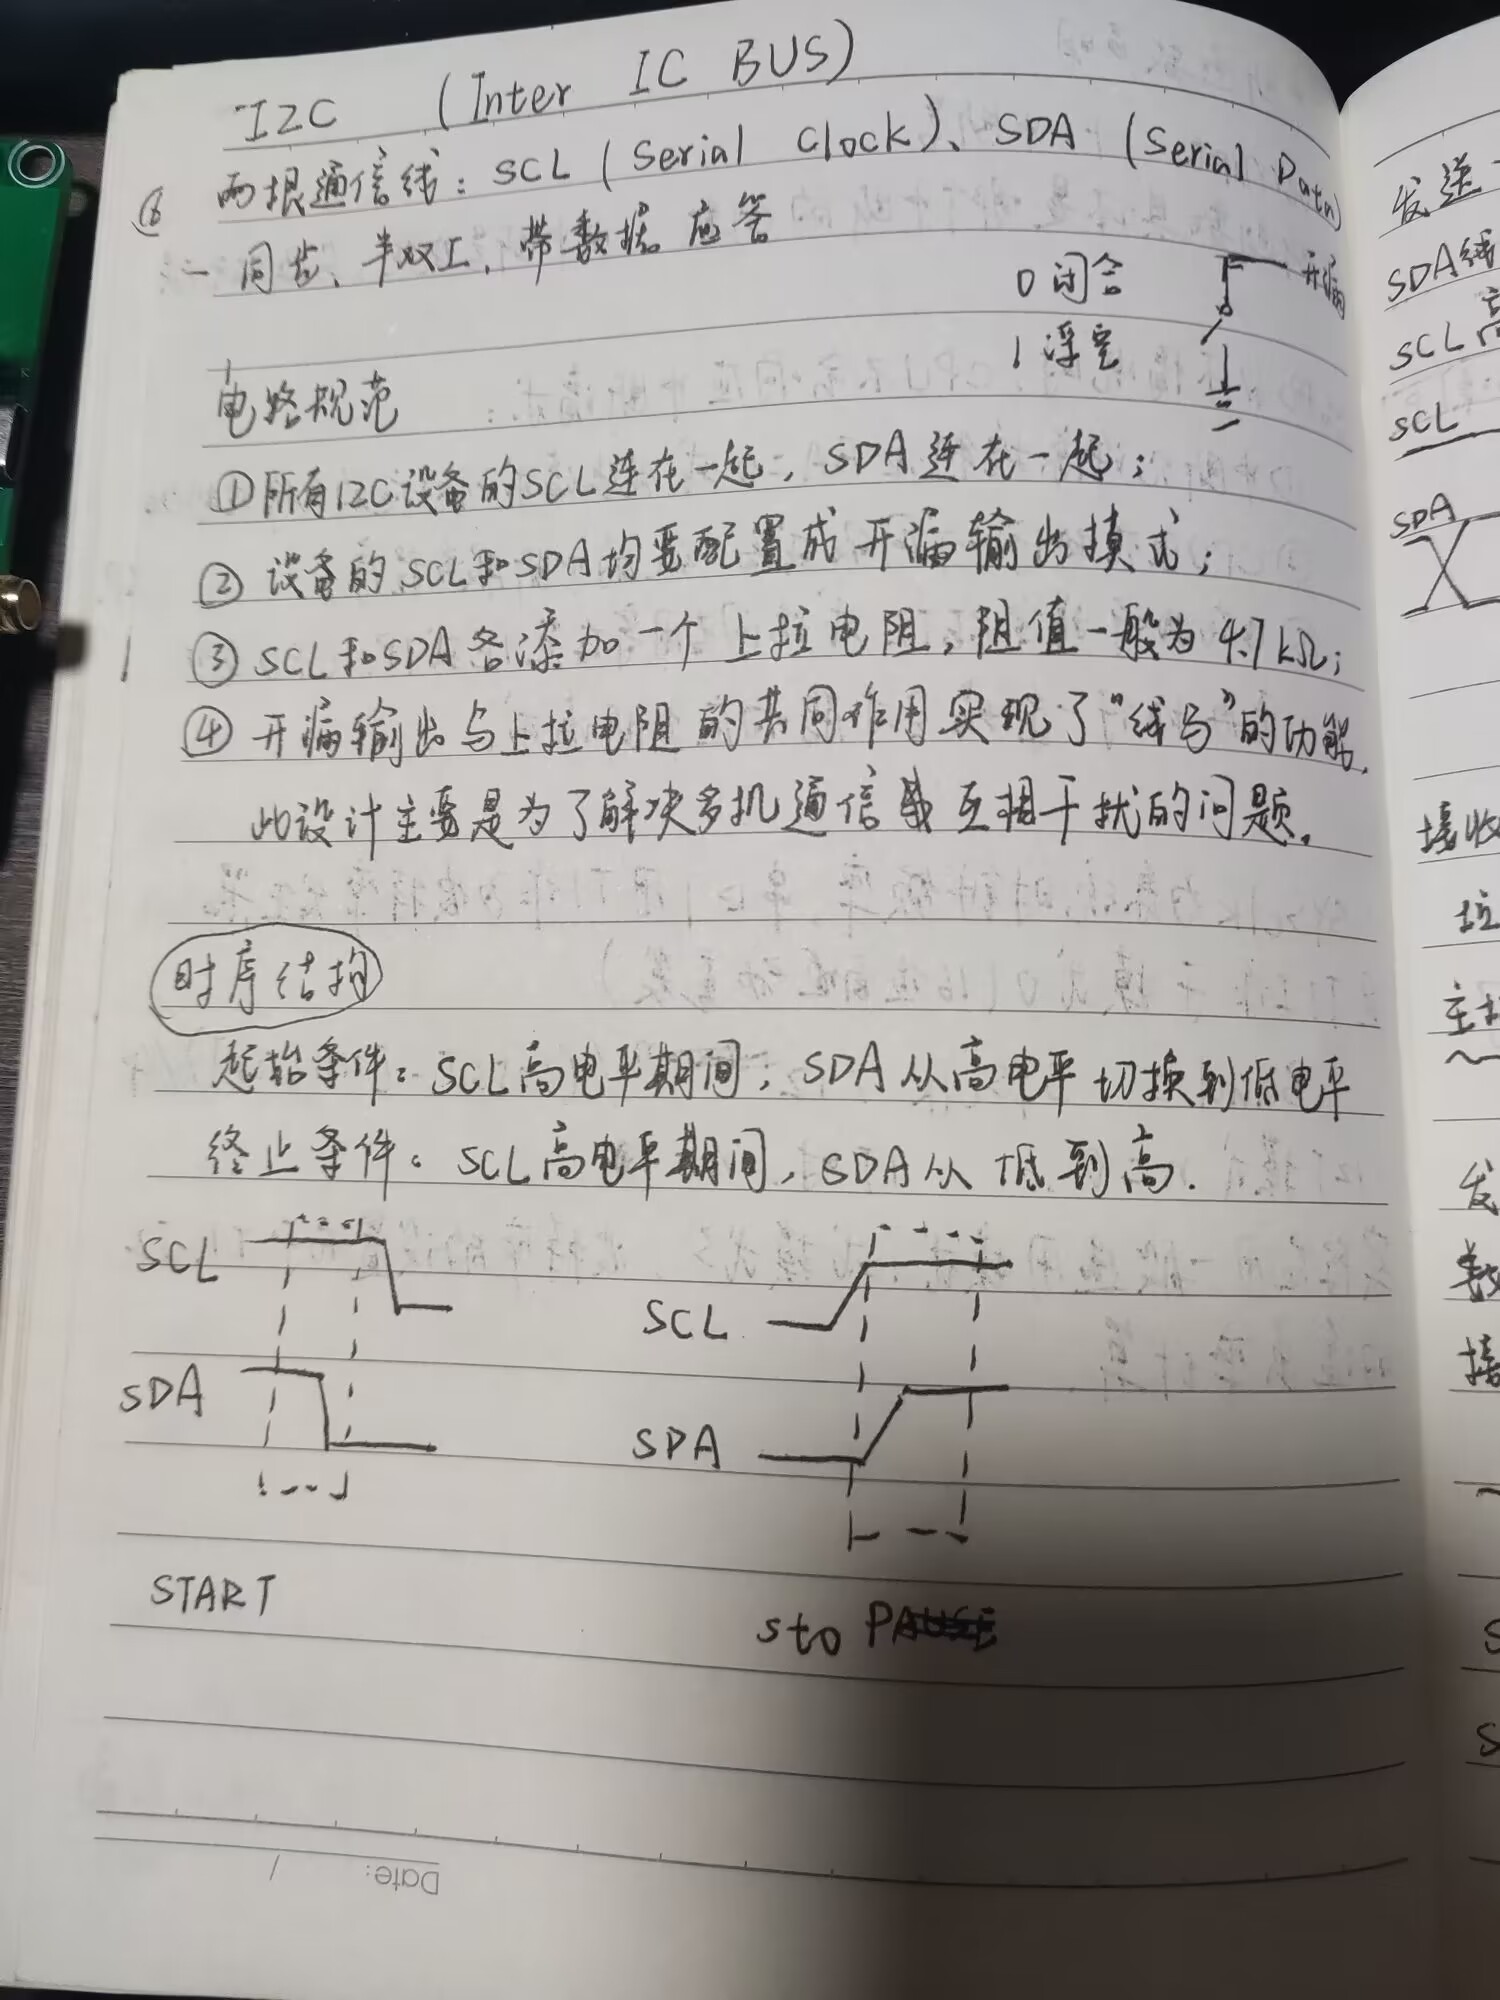 I2C (Inter IC BUS)
两根通信线：SCL (Serial Clock)、SDA (Serial Data)
同步、半双工，带数据应答
0 闭合
1 浮空
开漏
电路规范
①所有I2C设备的SCL连在一起，SDA连在一起；
②设备的SCL和SDA均要配置成开漏输出模式；
③SCL和SDA各添加一个上拉电阻，阻值一般为4.7kΩ；
④开漏输出与上拉电阻的共同作用实现了“线与”的功能，
此设计主要是为了解决多机通信 互相干扰的问题。
时序结构
起始条件：SCL高电平期间，SDA从高电平切换到低电平
终止条件：SCL高电平期间，SDA从低到高.
SCL
SDA
START
SCL
SDA
stoP
Date: /
发送
SDA线
SCL高
SCL
SDA
接收
主
发
接
S
S